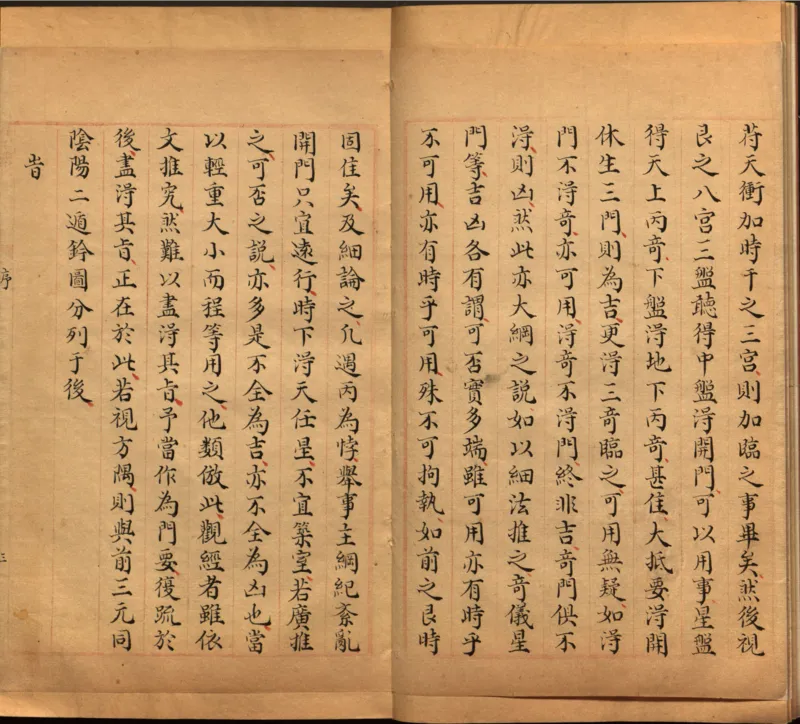 苻天衝加時干之三宮則加臨之事畢矣然後視
艮之八宮三盤聴得中盤淂開門可以用事星盤
得天上丙竒下盤淂地下丙竒甚佳大抵要淂開
休生三門則為吉更淂三竒臨之可用無疑如淂
門不淂竒亦可用淂竒不淂門終非吉竒門俱不
淂則凶然此亦大綱之說如以細法推之竒儀星
門等吉凶各有謂可否實多端雖可用亦有時乎
不可用亦有時乎可用殊不可拘執如前之艮時
固佳矣及細論之凡遇丙為悖舉事主綱紀紊亂
開門只宜遠行時下淂天任星不宜築室若廣推
之可否之說亦多是不全為吉亦不全為凶也當
以輕重大小而程等用之他類倣此觀經者雖依
文推究然難以盡淂其旨予當作為門要復䟽於
後盡淂其旨正在於此若視方隅則與前三元同
陰陽二遁鈐圖分列于後
旹
序